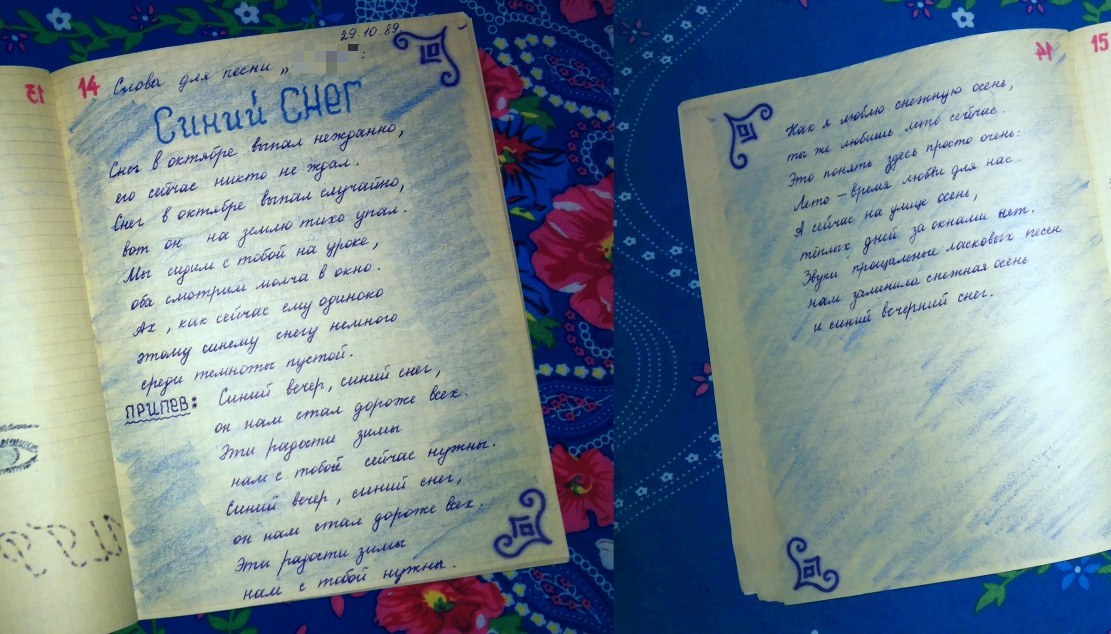 13
14
29.10.89
Слова для песни „ :
Синий снег
Снег в октябре выпал нежданно,
его сейчас никто не ждал.
Снег в октябре выпал случайно,
вот он на землю тихо упал.
Мы сидим с тобой на уроке,
оба смотрим молча в окно.
Ах, как сейчас ему одиноко
этому синему снегу немного
среди темноты пустой.
ПРИПЕВ: Синий вечер, синий снег,
он нам стал дороже всех.
Эти радости зимы
нам с тобой сейчас нужны.
Синий вечер, синий снег,
он нам стал дороже всех.
Эти радости зимы
нам с тобой нужны.
14
15
Как я люблю снежную осень,
ты же любишь лето сейчас.
Это понять здесь просто очень:
Лето – время любви для нас.
А сейчас на улице осень,
тёплых дней за окнами нет.
Звуки прощальные ласковых песен
нам заменила снежная осень
и синий вечерний снег.